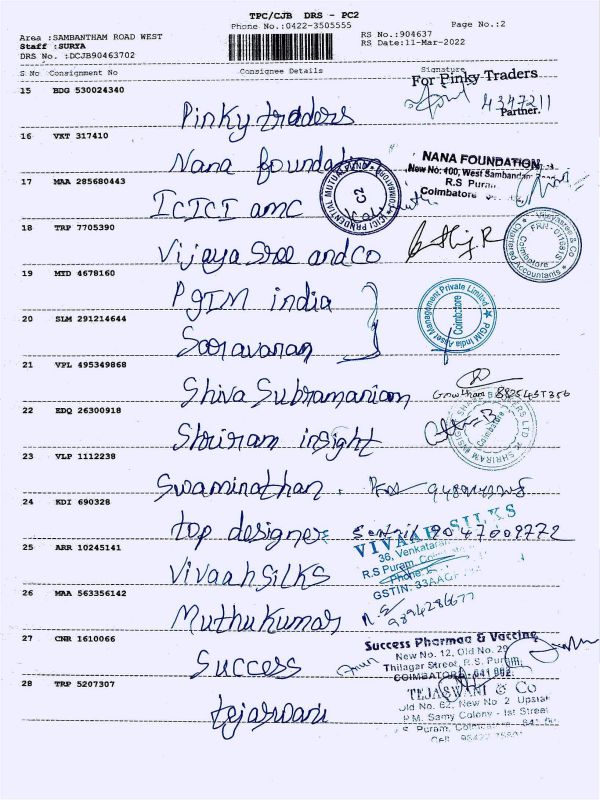 TPC/CJB DRS - PC2
Phone No.:0422-3505555
Page No.:2
Area :SAMBANTHAM ROAD WEST
Staff :SURYA
DRS No. :DCJB90463702
RS No.:904637
RS Date:11-Mar-2022
S No Consignment No Consignee Details Signature
15 BDG 530024340
Pinky traders
For Pinky Traders
4347211
Partner.
16 VKT 317410
Nana foundation
NANA FOUNDATION
New No: 100, West Sambandam
R.S Puram
Coimbatore
17 MAA 285680443
ICICI amc
ICICI PRUDENTIAL MUTUAL
C2
COIMBATORE
18 TRP 7705390
Vijaya Sree and Co
Vijayasree & Co
Coimbatore
Chartered Accountants
19 MTD 4678160
PGIM india
PGIM India Asset Management Private Limited
Coimbatore
20 SLM 291214644
Saravanan
21 VPL 495349868
Shiva Subramaniam
Gowtham
22 EDQ 26300918
Shriram insight
SHRIRAM
Coimbatore
23 VLP 1112238
Swaminathan
24 KDI 690328
top designer
Senthil 9047009772
25 ARR 10245141
Vivaah Silks
VIVAAH SILKS
36, Venkatara
R.S Puram,
Phone:
GSTIN: 33AAG
26 MAA 563356142
Muthukumar
9894286677
27 CNR 1610066
Success
Success Pharmaa & Vaccine
New No. 12, Old No. 29
Thilagar Street, R.S. Puram
COIMBATORE - 641 002
28 TRP 5207307
tejaswani
TEJASWANI & Co
Old No. 62, New No 2 Upstair
P.M. Samy Colony - 1st Street
Puram, Coimbatore
Cell